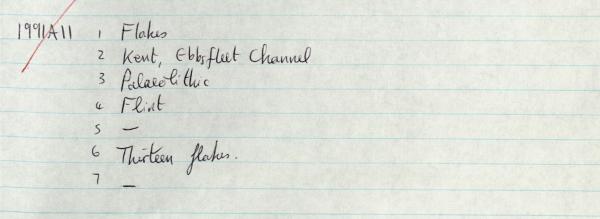 1991A11 1 Flakes
2 Kent, Ebbsfleet Channel
3 Palaeolithic
4 Flint
5 —
6 Thirteen flakes.
7 —